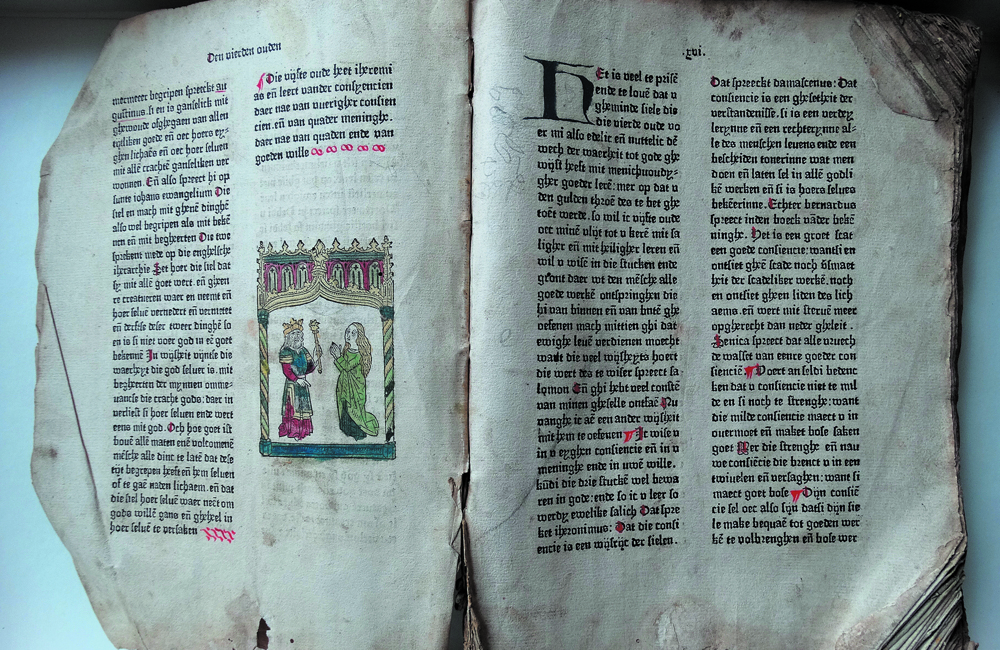 Den vierden ouden
mermeer begripen spreeckt au
gustinus. si en is ganslick mit
ghewoude ofghegaen van allen
tytliken goede eñ oec hoers ey⸗
ghen lichaēs eñ oec hoer seluen
mit alle crachtē ganseliken ver
wonnen. En also spreect hi op
sunte iohans ewangelium Die
siel en mach mit ghenē dinghē
also wel begripen als mit bekē
nen eñ mit begheerten Die twe
sprekent mede op die enghelsche
iherarchie Let hoer die siel dat
sy mit allē goet wert. eñ ghen
re creatueren waer en neemt eñ
hoer seluē vernedert eñ vermeert
eñ derfste deser tweer dinghē so
en is si niet voer god in eē goet
bekennē In wijsheit
waerheyt die god seluer is. mit
begheerten der mynnen omme⸗
uancse die crachte gods: daer in
verliest si hoer seluen ende wert
eens mit god. Och hoe goet ist
bouē allē maten enē volcomenē
mēsche alle dinc te latē dat dese
tijt begrepen heeft eñ hem seluen
of te gaē naden lichaem. eñ dat
die siel hoer seluē waer neēt om
gods willē gans eñ gheheel in
hoer seluē te versaken
Die vijfte oude heet iheremi
as eñ leert vander consyencien
daer nae van vuerigher consien
cien. eñ van quader meninghe.
daer nae van quaden ende van
goeden wille
.xvi.
HEt is veel te prisē
ende te louē dat v
gheminde siele die
die vierde oude vo
er mi also edelic eñ nuttelic dē
wech der waerheit tot gode ghe
wijst heeft mit menichvoudy⸗
gher goeder lerē: mer op dat v
den gulden throē des te bet ghe
toēt werde. so wil ic vijfte oude
oec minē vlijt tot v kerē mit sa
ligher eñ mit heiligher leren eñ
wil v wisē in die stucken ende
gront daer wt den mēsche alle
goede werkē ontspringhen die
hi van binnen eñ van butē ghe
oefenen mach mittien ghi dat
ewighe leuē verdienen moecht
want die veel wijsheyts hoert
die wert des te wiser spreect sa
lomon En ghi hebt veel constē
van minen gheselle ontfaē Nu
vanghe ic aē een ander wijsheit
mit hem te oefenen Ic wise v
in v eyghen consciencie eñ in v
meninghe ende in uwē wille.
kūdi die drie stuckē wel bewa
ren in gode: ende so ic v leer so
werdy ewelike salich Dat spre
ket iheronimus: Dat die consi
encie is een der sielen.
Dat spreeckt damascenus: Dat
consiencie is een ghesetheit der
verstandenisse. si is een verdry
lerynne eñ een rechterynne al⸗
le des menschen leuens ende een
bescheiden tonerinne wat men
doen eñ laten sel in allē godli
kē wercken eñ si is hoers selues
bekēerinne. Echter bernardus
spreect inden boeck vādēr bekē
ninghe. Het is een groet scat
een goede consiencie: wantsi en
ontsiet ghēē scade noch
heit der scadeliker werkē. noch
en ontsiet gheen liden des lich
aems. eñ wert mit steruē meer
opgherecht dan neder gheleit.
Senica spreect dat alle vruech
de wasset van eenre goeder con
sienciē Voert anseldi bedenc
ken dat v consiencie niet te mil
de en si noch te strenghe: want
die milde consiencie maect v in
ouermoet eñ maket bose saken
goet Mer die strenghe eñ nau
we consiēcie die brenct v in een
twiuelen eñ versaghen: want si
maect goet bose Dijn consiē
cie sel oec also sijn datsi dijn sie
le make bequaē tot goeden wer
kē te volbrenghen eñ bose wer